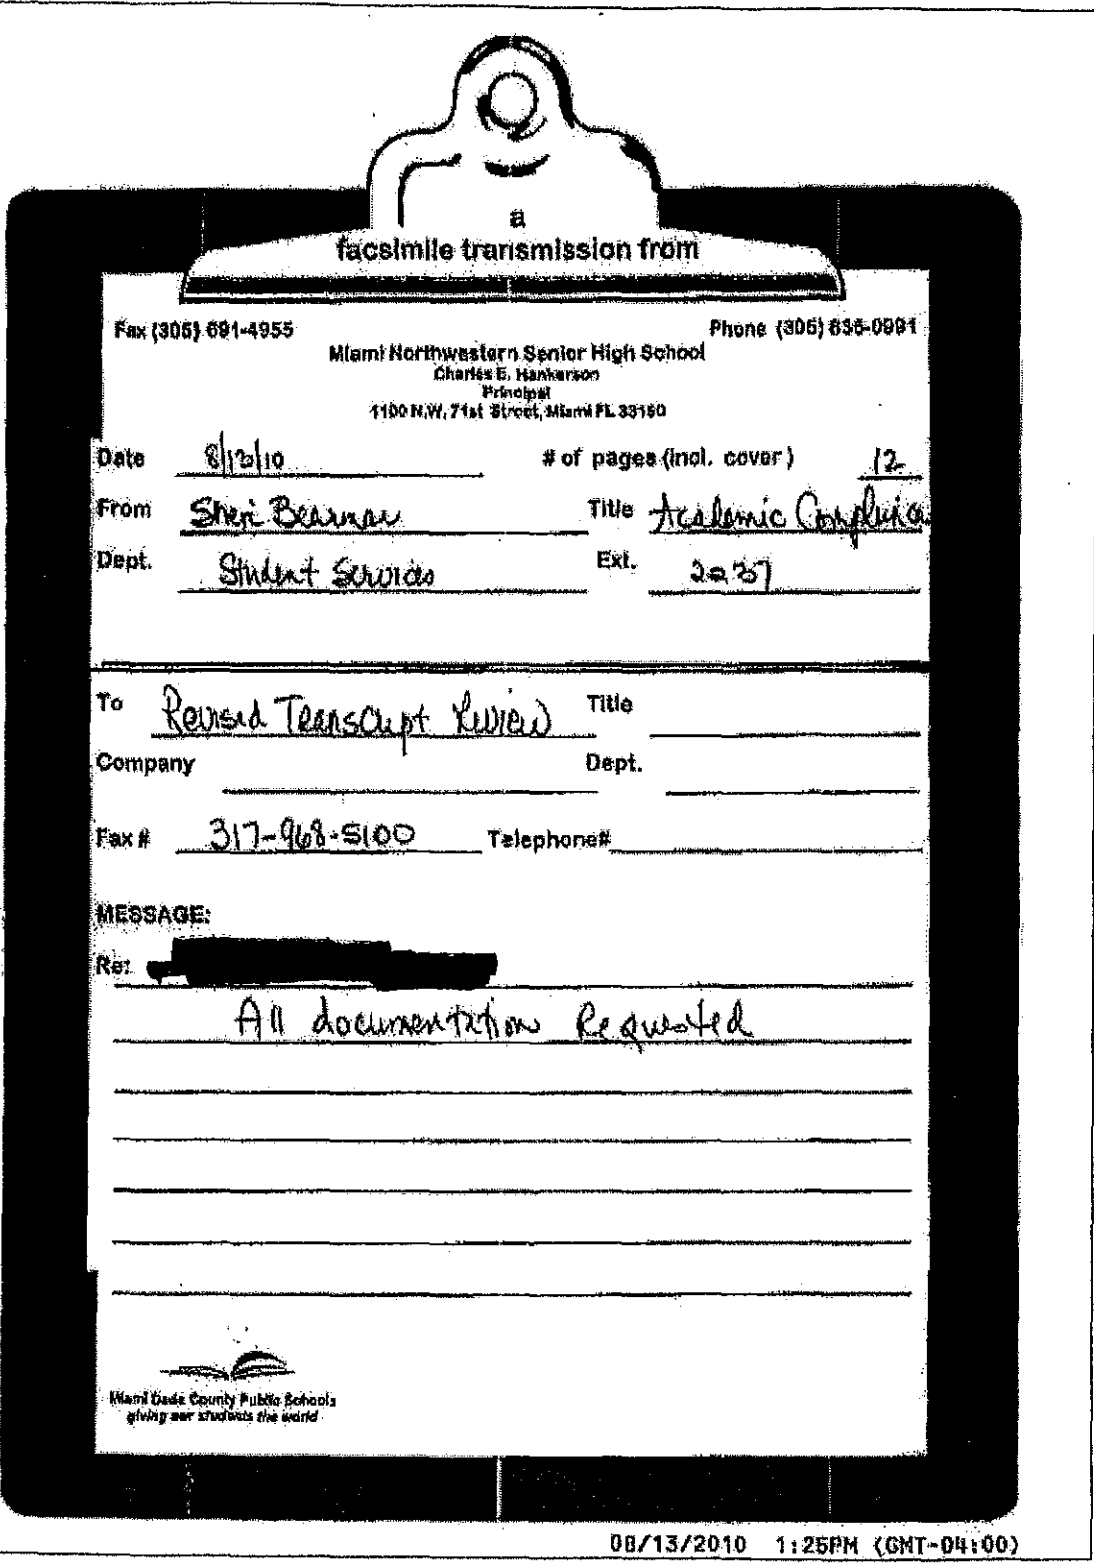 a
facsimile transmission from
Fax (305) 691-4955 Phone (305) 836-0991
Miami Northwestern Senior High School
Charles E. Hankerson
Principal
1100 N.W. 71st Street, Miami FL 33150
Date 8/13/10 # of pages (incl. cover) 12
From Sheri Bearman Title Academic Compliance
Dept. Student Services Ext. 2237
To Revised Transcript Review Title
Company Dept.
Fax # 317-968-5100 Telephone#
MESSAGE:
Re:
All documentation Requested
Miami Dade County Public Schools
giving our students the world
08/13/2010 1:25PM (GMT-04:00)